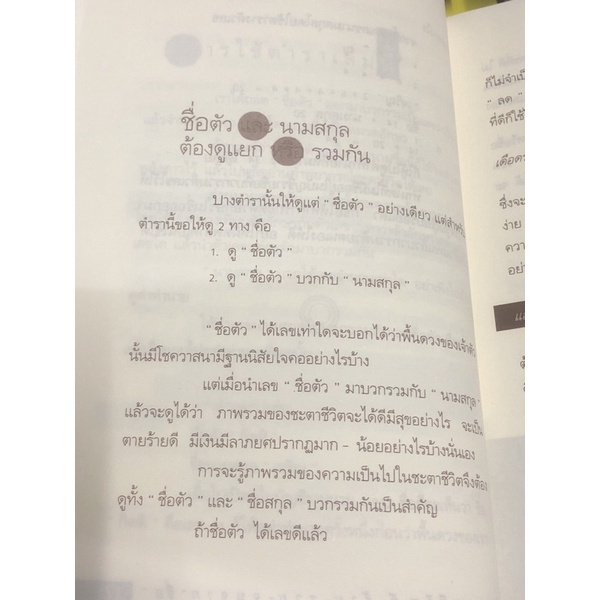 ชื่อตัว และ นามสกุล
ต้องดูแยก หรือ รวมกัน
บางตำรานั้นให้ดูแต่ “ ชื่อตัว ” อย่างเดียว แต่สำหรับ
ตำรานี้ขอให้ดู 2 ทาง คือ
1. ดู “ ชื่อตัว ”
2. ดู “ ชื่อตัว ” บวกกับ “ นามสกุล ”
“ ชื่อตัว ” ได้เลขเท่าใดจะบอกได้ว่าพื้นดวงของเจ้าตัว
นั้นมีโชควาสนามีฐานนิสัยใจคออย่างไรบ้าง
แต่เมื่อนำเลข “ ชื่อตัว ” มาบวกรวมกับ “ นามสกุล ”
แล้วจะดูได้ว่า ภาพรวมของชะตาชีวิตจะได้ดีมีสุขอย่างไร จะเป็น
ตายร้ายดี มีเงินมีลาภยศปรากฏมาก - น้อยอย่างไรบ้างนั่นเอง
การจะรู้ภาพรวมของความเป็นไปในชะตาชีวิตจึงต้อง
ดูทั้ง “ ชื่อตัว ” และ “ ชื่อสกุล ” บวกรวมกันเป็นสำคัญ
ถ้าชื่อตัว ได้เลขดีแล้ว
ก็ไม่จำเป็
“ ลด ”
ที่ดีก็ใช้
เดือดร
ซึ่งจะ
ง่าย
ควา
อย่า